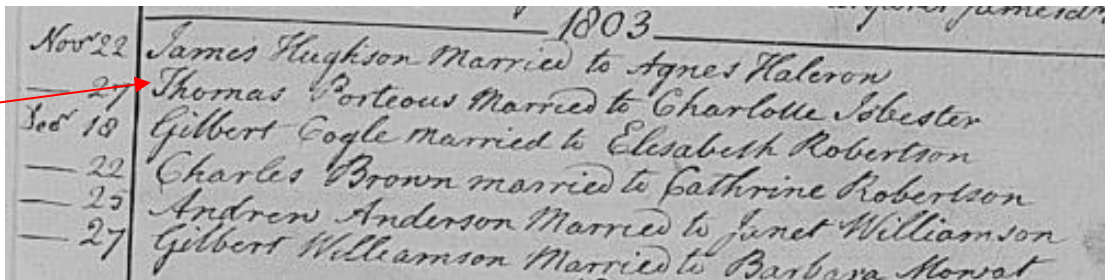 1803
Novr 22 James Hughson Married to Agnes Halcron
— 27 Thomas Porteous Married to Charlotte Isbester
Decr 18 Gilbert Cogle married to Elisabeth Robertson
— 22 Charles Brown married to Cathrine Robertson
— 25 Andrew Anderson Married to Janet Williamson
— 27 Gilbert Williamson Married to Barbara Mowat